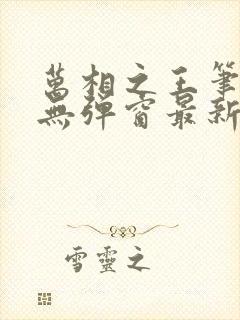 萬相之王筆
無彈窗最新
雪靈之